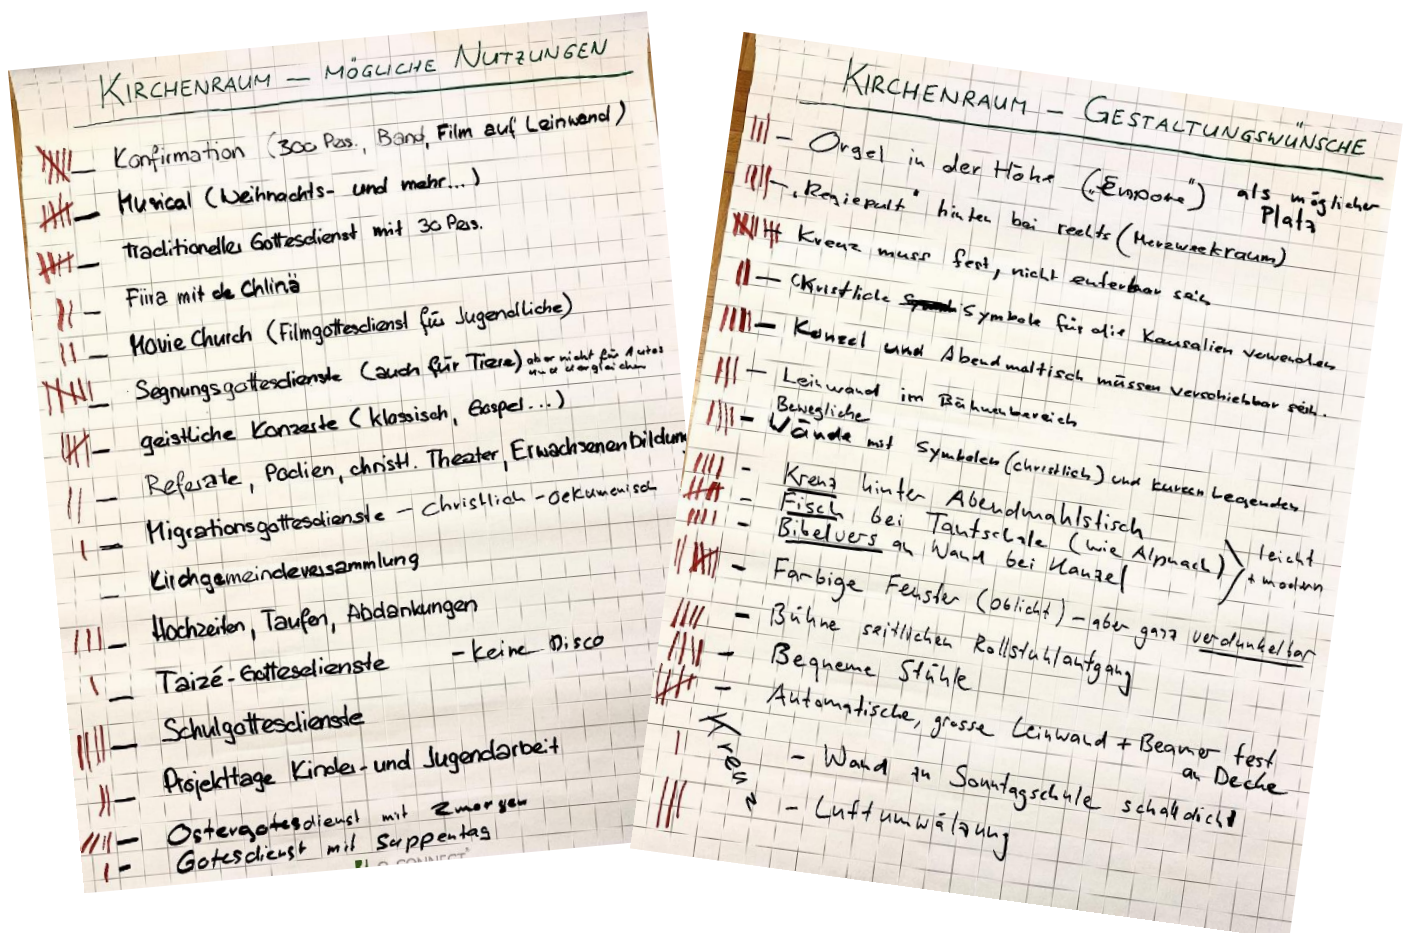 KIRCHENRAUM – MÖGLICHE NUTZUNGEN
– Konfirmation (300 Pers., Band, Film auf Leinwand)
– Musical (Weihnachts- und mehr...)
– Traditioneller Gottesdienst mit 30 Pers.
– Fiira mit de Chlinä
– Movie Church (Filmgottesdienst für Jugendliche)
– Segnungsgottesdienste (auch für Tiere) aber nicht für Autos
und dergleichen
– geistliche Konzerte (klassisch, Gospel...)
– Referate, Podien, christl. Theater, Erwachsenenbildung
– Migrationsgottesdienste – christlich-oekumenisch
– Kirchgemeindeversammlung
– Hochzeiten, Taufen, Abdankungen
– Taizé-Gottesdienste – keine Disco
– Schulgottesdienste
– Projekttage Kinder- und Jugendarbeit
– Ostergottesdienst mit Zmorgen
– Gottesdienst mit Suppentag
CONNECT
KIRCHENRAUM – GESTALTUNGSWÜNSCHE
– Orgel in der Höhe ("Empore") als möglicher
Platz
– "Regiepult" hinten bei rechts (Merzweckraum)
Kreuz muss fest, nicht entferbar sein
– Christliche Symbole für die Kausalien verwenden
– Kanzel und Abendmaltisch müssen verschiebbar sein.
– Leinwand im Bühnenbereich
Bewegliche
– Wände mit Symbolen (christlich) und kurzen Legenden
– Kreuz hinter Abendmahlstisch
– Fisch bei Taufschale (wie Alpnach)
– Bibelvers an Wand bei Kanzel
leicht
+ modern
– Farbige Fenster (Oblicht) – aber ganz verdunkelbar
– Bühne seitlichen Rollstuhlaufgang
– Bequeme Stühle
– Automatische, grosse Leinwand + Beamer fest
an Decke
Kreuz
– Wand zu Sonntagschule schalldicht
– Luftumwälzung